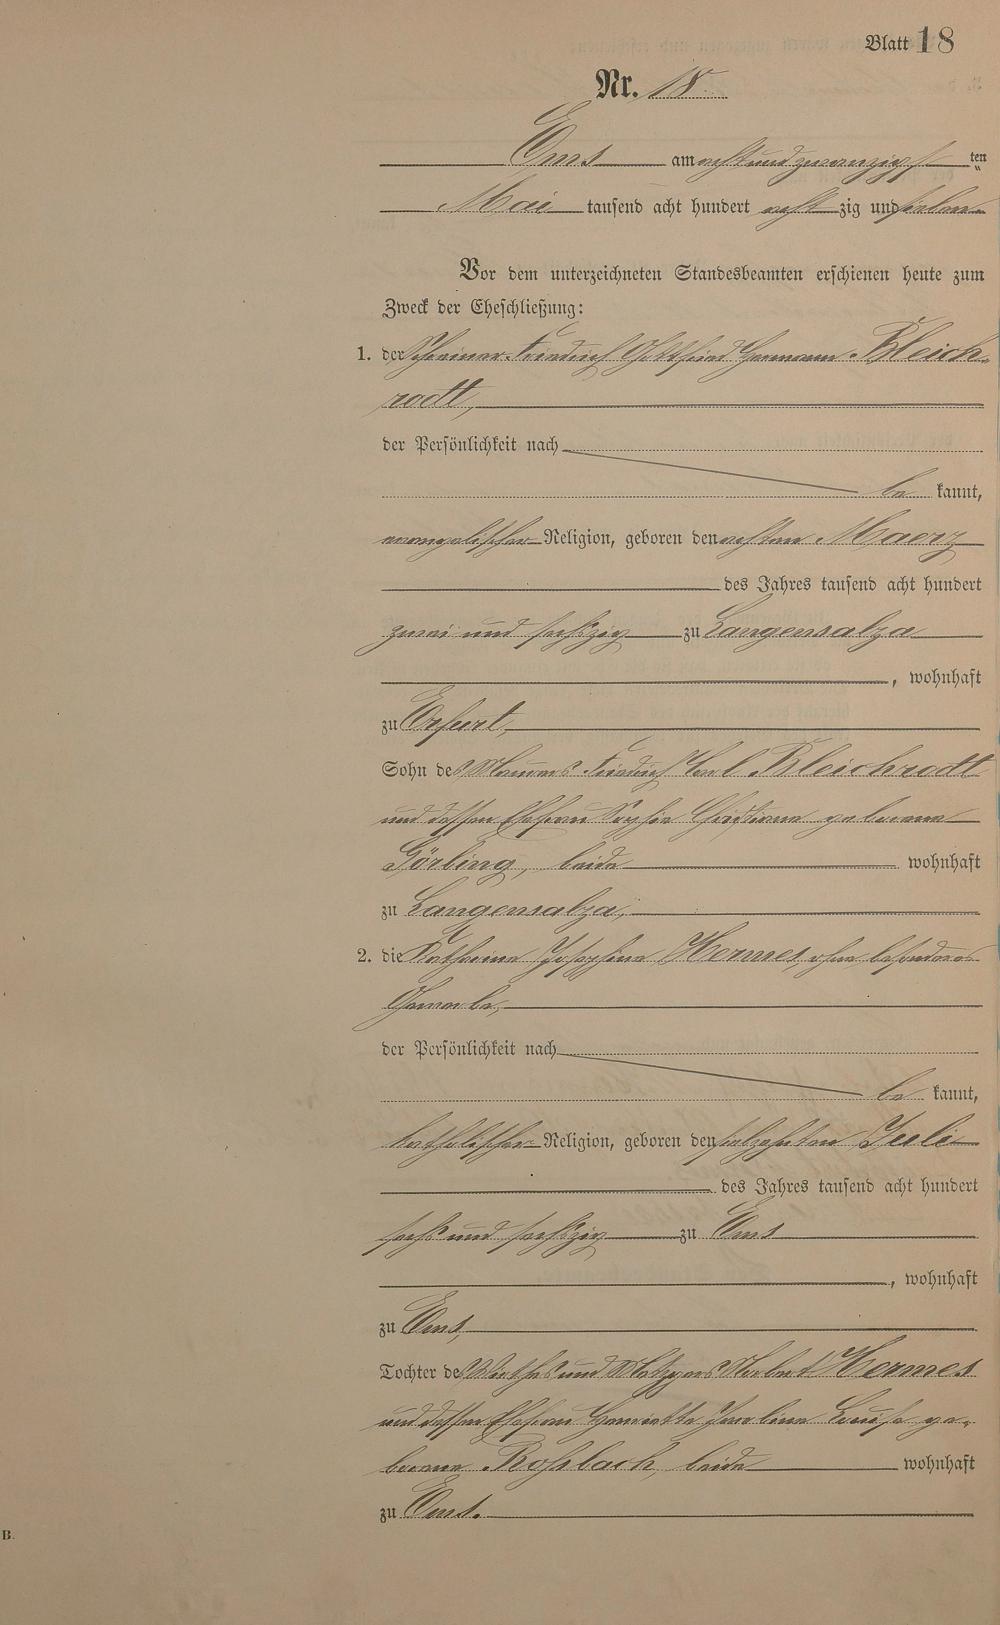 Blatt 18
Nr. 18.
Ems am acht und zwanzigsten
Mai tausend acht hundert acht zig und sieben
Vor dem unterzeichneten Standesbeamten erschienen heute zum
Zweck der Eheschließung:
1. der Schreiner Friedrich Gottfried Hermann Bleich-
rodt,
der Persönlichkeit nach
be kannt,
evangelischer Religion, geboren den achten Maerz
des Jahres tausend acht hundert
zwei und sechszig zu Langensalza
, wohnhaft
zu Erfurt,
Sohn des Maurers Friedrich Carl Bleichrodt
und dessen Ehefrau Sophie Christiane geborene
Görbing, beide wohnhaft
zu Langensalza,
2. die Katharina Josephine Hermes, ohne besonderes
Gewerbe,
der Persönlichkeit nach
be kannt,
katholischer Religion, geboren den Juli
des Jahres tausend acht hundert
sechs und sechszig zu Ems
, wohnhaft
zu Ems,
Tochter des Wirthes und Metzgers Norbert Hermes
und dessen Ehefrau Henriette Karoline Louise ge-
borene Rohrbach, beide wohnhaft
zu Ems.
B.